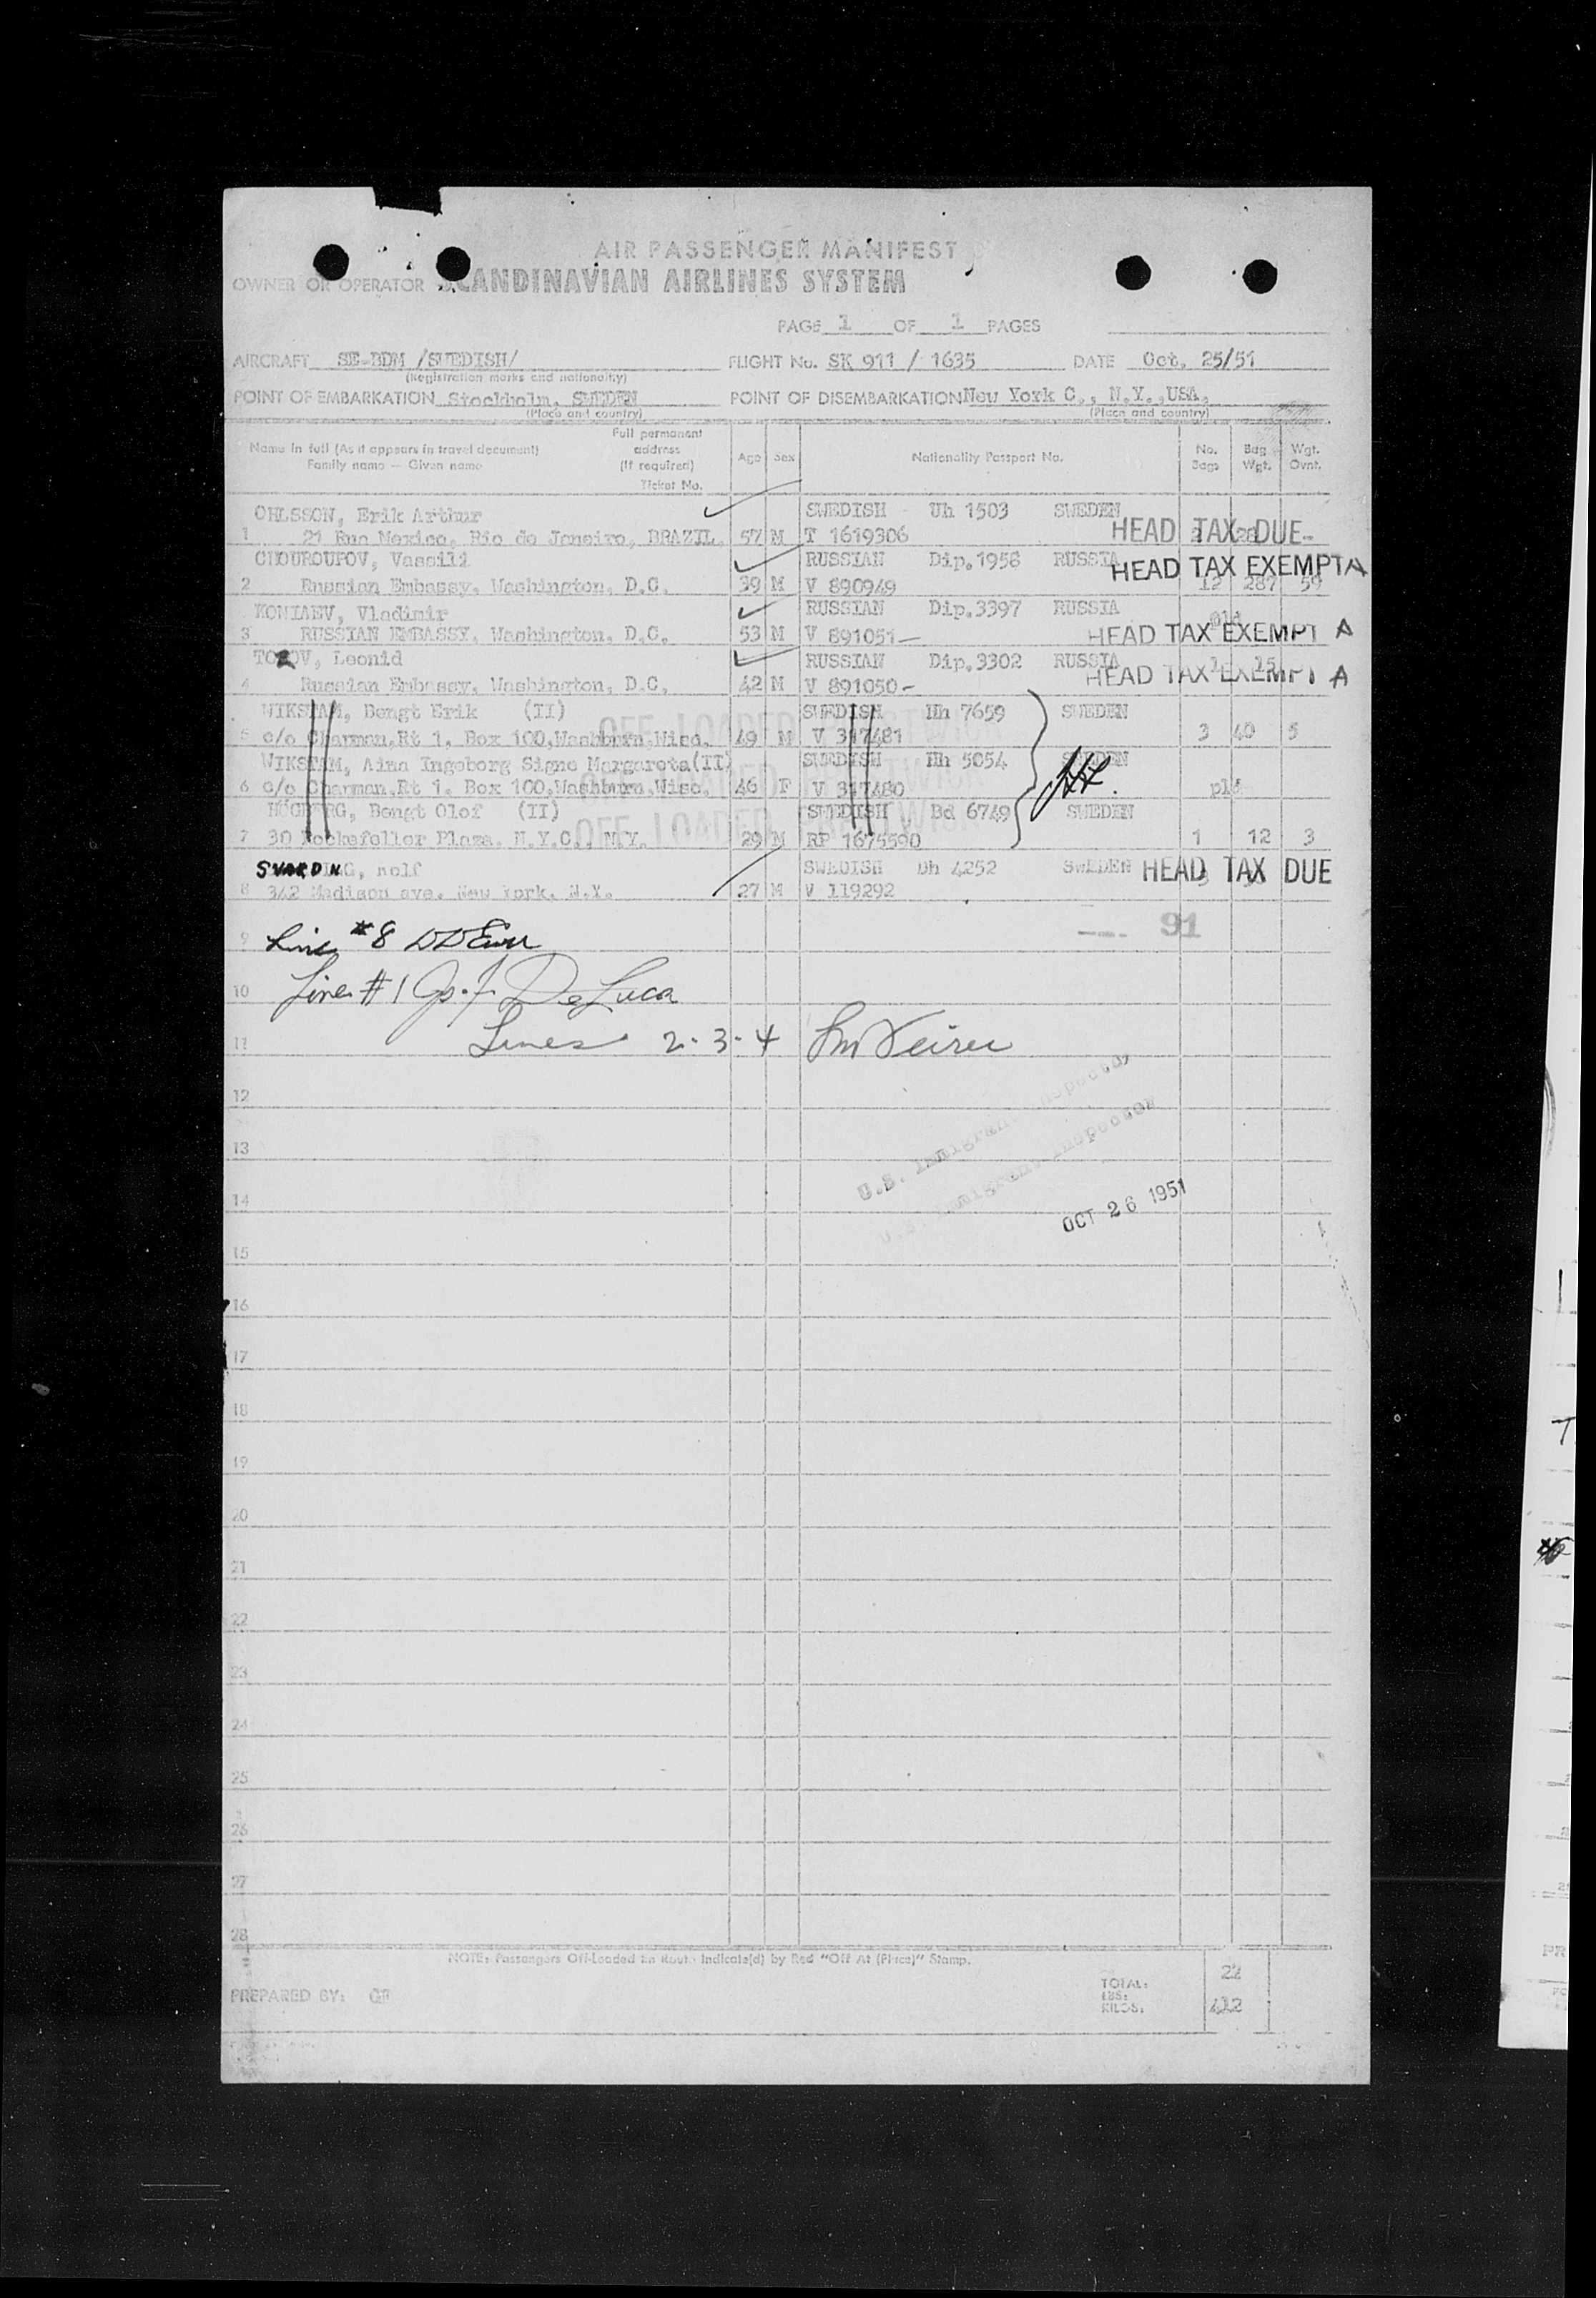 AIR PASSENGER MANIFEST
OWNER OR OPERATOR SCANDINAVIAN AIRLINES SYSTEM
PAGE 1 OF 1 PAGES
AIRCRAFT SE-BDM /SWEDISH/ FLIGHT No. SK 911 / 1635 DATE Oct. 25/51
(Registration marks and nationality)
POINT OF EMBARKATION Stockholm, SWEDEN POINT OF DISEMBARKATION New York C., N.Y.,USA.
(Place and country) (Place and country)
Name in full (As it appears in travel document) Full permanent address (If required) Age Sex Nationality Passport No. No. Bags Bag Wgt. Wgt. Ovnt.
Family name — Given name
Ticket No.
OHLSSON, Erik Arthur SWEDISH Uh 1503 SWEDEN HEAD TAX DUE
1 21 Rue Mexico, Rio de Janeiro, BRAZIL. 57 M T 1619306
CHOUROUPOV, Vassili RUSSIAN Dip.1958 RUSSIA HEAD TAX EXEMPT A
2 Russian Embassy, Washington, D.C. 39 M V 890949 12 287 59
KONIAEV, Vladimir RUSSIAN Dip.3397 RUSSIA pld
3 RUSSIAN EMBASSY, Washington, D.C. 53 M V 891051 HEAD TAX EXEMPT A
Leonid RUSSIAN Dip.3302 RUSSIA 1 15
4 Russian Embassy, Washington, D.C. 42 M V 891050 HEAD TAX EXEMPT A
WIKSTAM, Bengt Erik (II) SWEDISH Hh 7659 SWEDEN
5 c/o Chapman,Rt 1. Box 100,Washburn,Wisc. 49 M V 317481 3 40 5
WIKSTAM, Aina Ingeborg Signe Margareta(II) SWEDISH Hh 5054 SWEDEN
6 c/o Chapman,Rt 1. Box 100,Washburn,Wisc. 46 F V 317480 pld
HÖGBERG, Bengt Olof (II) SWEDISH Bd 6749 SWEDEN
7 30 Rockefeller Plaza. N.Y.C., N.Y. 29 M RP 1675590 1 12 3
OFF LOADED PRESTWICK
OFF LOADED PRESTWICK
OFF LOADED PRESTWICK
Rolf SWEDISH Dh 4252 SWEDEN HEAD TAX DUE
8 342 Madison ave. New York. N.Y. 27 M V 119292
91
9 Line #8
10 Line #1 DeLuca
11 Lines 2-3-4
12
U.S. Immigrant Inspector
13
U.S. Immigrant Inspector
14 OCT 26 1951
15
16
17
18
19
20
21
22
23
24
25
26
27
28
NOTE: Passengers Off-Loaded En Route Indicate(d) by Red "Off At (Place)" Stamp.
TOTAL: 22
PREPARED BY:
LBS:
KILOS: 412